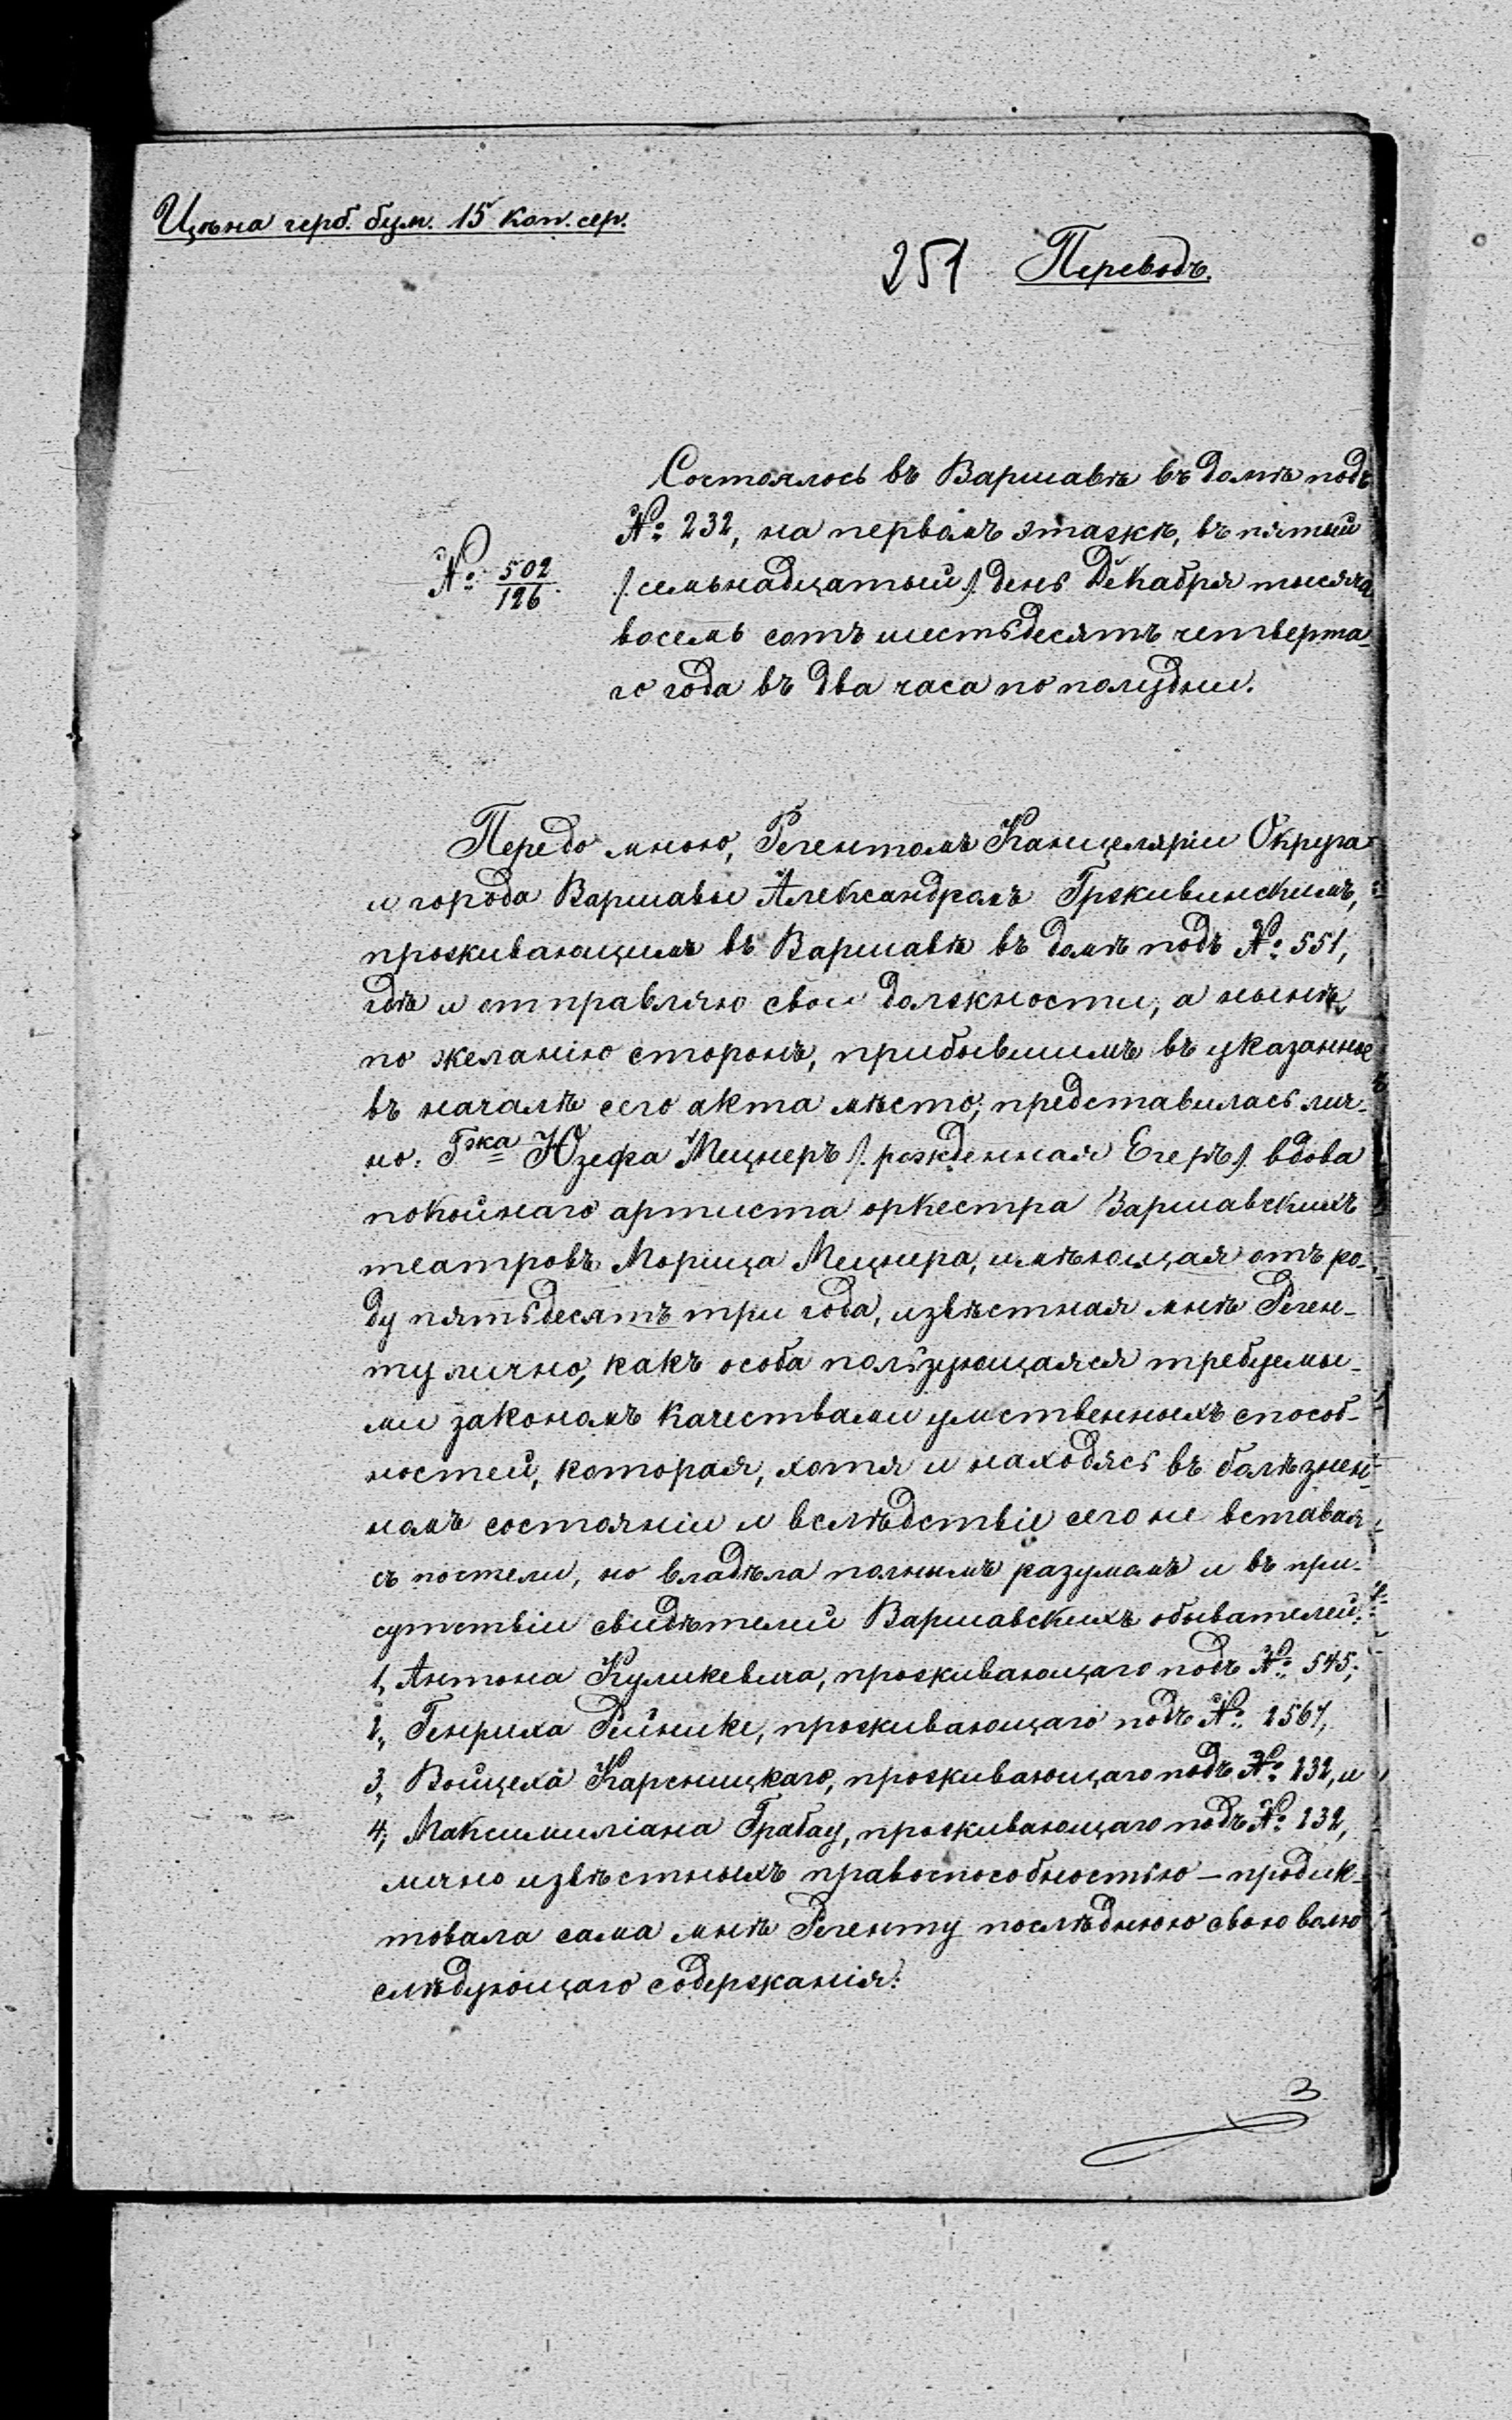 Цѣна герб. бум. 15 коп. сер.
251 Переводъ.
Состоялось въ Варшавѣ въ домѣ подъ
№ 232, на первомъ этажѣ, въ пятый
№ 502/126. /:семьнадцатый:/ день Декабря тысяча
восемь сотъ шестьдесятъ четверта-
го года въ два часа по полудни.
Передо мною, Регентомъ Канцеляріи Округа
и города Варшавы Александромъ Грживинскимъ,
проживающимъ въ Варшавѣ въ домѣ подъ № 551,
гдѣ и отправляю свои должности, а нынѣ,
по желанію сторонъ, прибывшимъ въ указанное
въ началѣ сего акта мѣсто, представилась лич-
но: Гжка Юзефа Мецнеръ /:рожденная Егеръ:/ вдова
покойнаго артиста оркестра Варшавскихъ
театровъ Морица Мецнера, имѣющая отъ ро-
ду пятьдесятъ три года, извѣстная мнѣ Реген-
ту лично, какъ особа пользующаяся требуемы-
ми закономъ качествами умственныхъ способ-
ностей, которая, хотя и находясь въ болѣзнен-
номъ состояніи и вслѣдствіе сего не вставая
съ постели, но владѣла полнымъ разумомъ и въ при-
сутствіи свидѣтелей Варшавскихъ обывателей:
1, Антона Куликевича, проживающаго подъ № 545;
2, Генриха Рейнике, проживающаго подъ № 2567,
3, Войцеха Карсницкаго, проживающаго подъ № 232, и
4, Максимиліана Грабау, проживающаго подъ № 232,
лично извѣстныхъ правоспособностью — продик-
товала сама мнѣ Регенту послѣднюю свою волю
слѣдующаго содержанія: